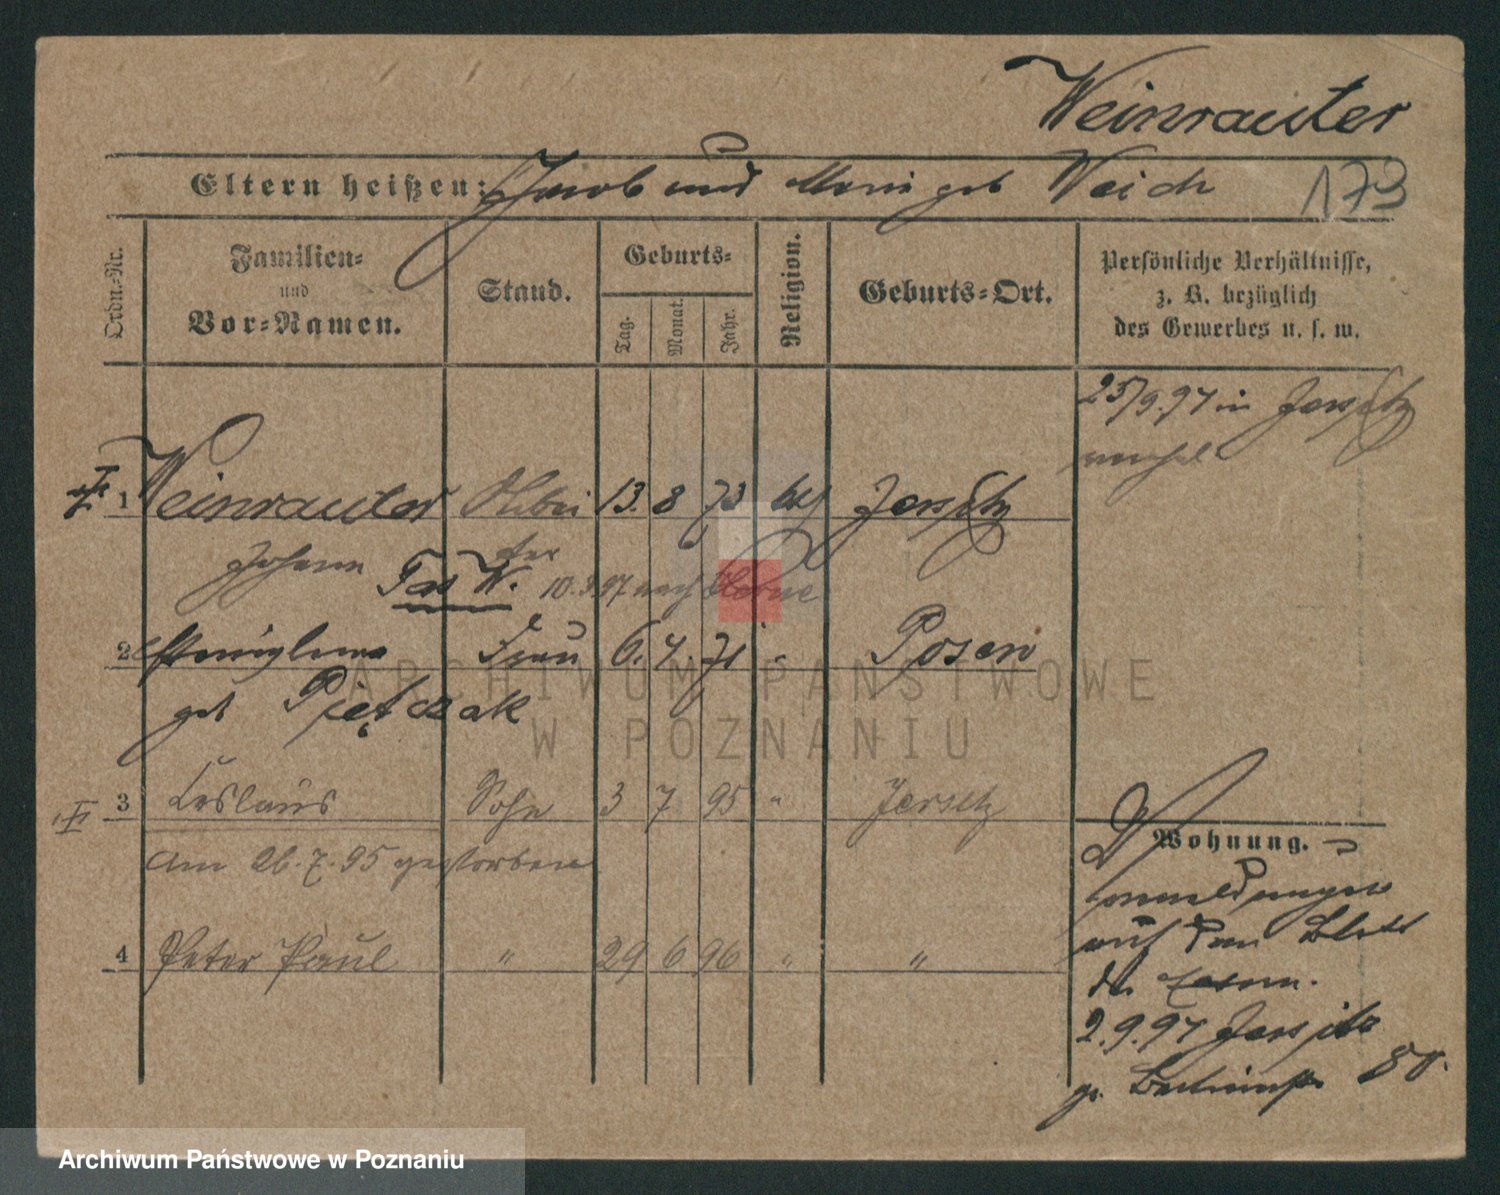 Weinrauter
Eltern heißen: Jacob und Marie geb Weich
173
Ordn.-Nr.
Familien-
und
Vor-Namen.
Stand.
Geburts-
Tag.
Monat.
Jahr.
Religion.
Geburts-Ort.
Persönliche Verhältnisse,
z. B. bezüglich
des Gewerbes u. s. w.
25/9.97 in Jersitz
1 Weinrauter 13. 8 73 kth Jersitz
Johann
10.3.97 nach Herne
2 Frau 6. 4. 71 " Posen
geb Piętczak
3 Ceslaus Sohn 3 7 95 " Jersitz
am 26. 7. 95 gestorben
4 Peter Paul " 29 6 96 " "
Wohnung.
Anmeldungen
auf dem Blatt
2.9.97 Jersitz
80.
ARCHIWUM PAŃSTWOWE
W POZNANIU
Archiwum Państwowe w Poznaniu